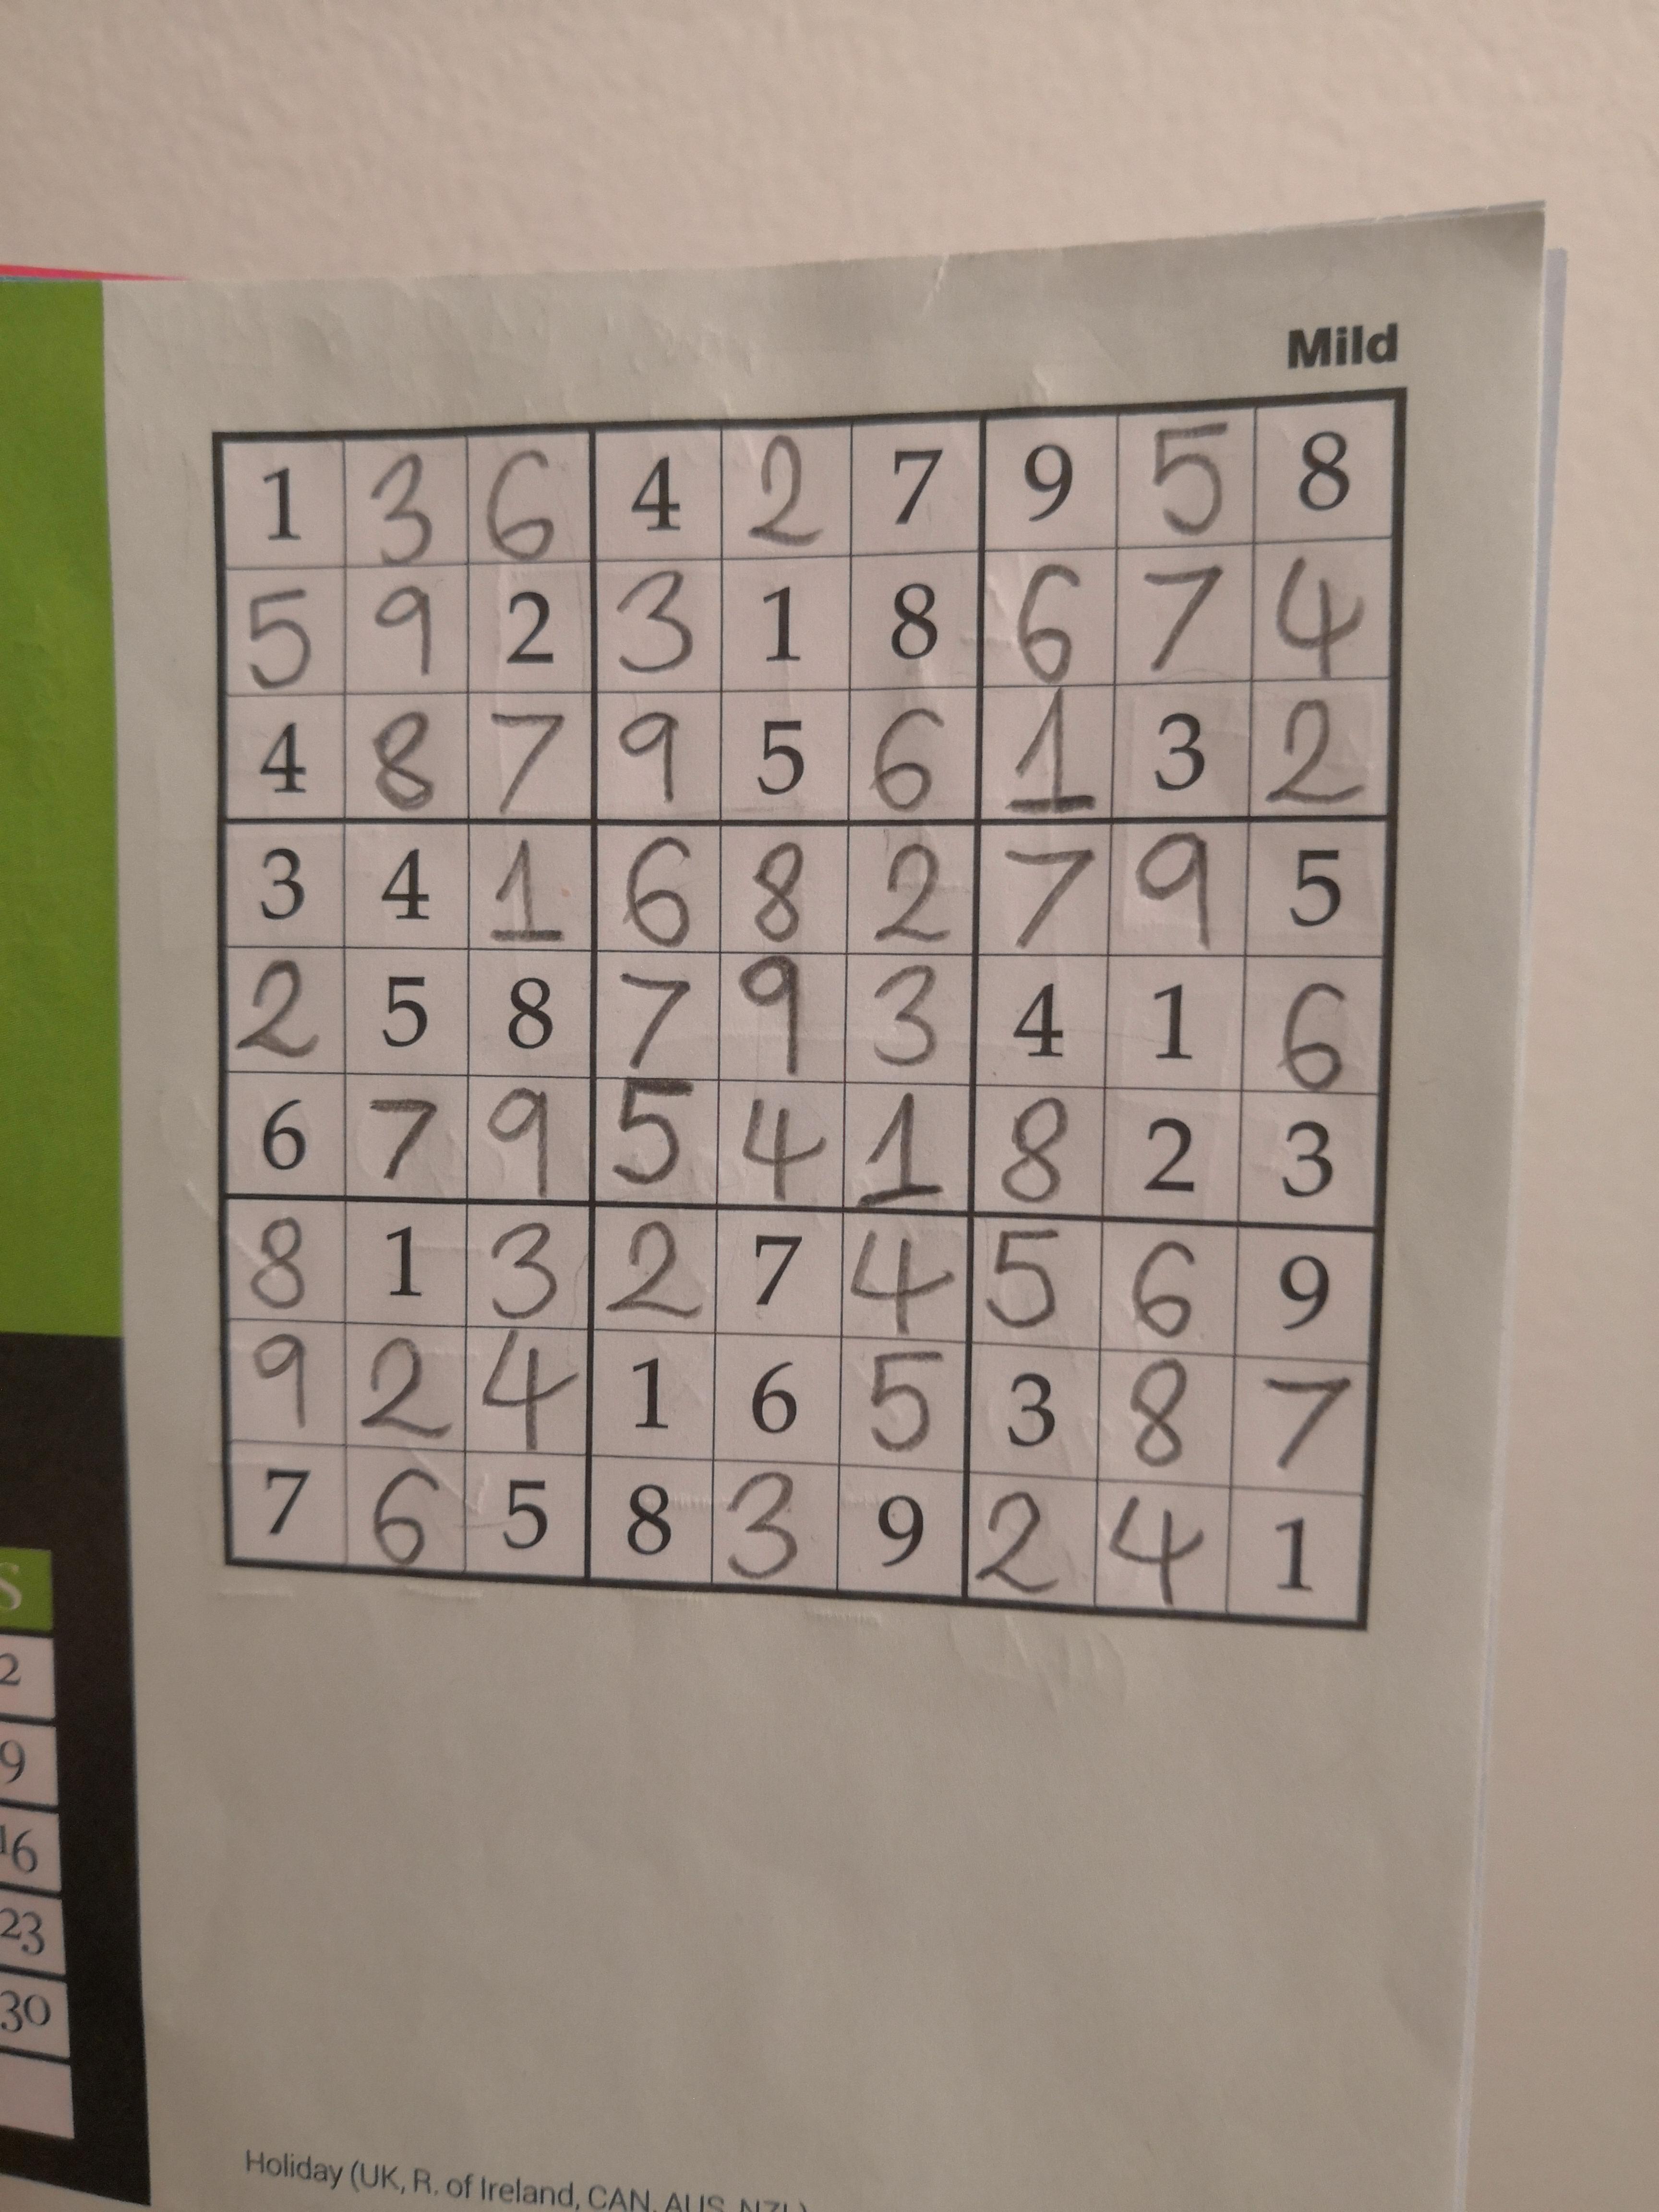 Mild
1 3 6 4 2 7 9 5 8
5 9 2 3 1 8 6 7 4
4 8 7 9 5 6 1 3 2
3 4 1 6 8 2 7 9 5
2 5 8 7 9 3 4 1 6
6 7 9 5 4 1 8 2 3
8 1 3 2 7 4 5 6 9
9 2 4 1 6 5 3 8 7
7 6 5 8 3 9 2 4 1
S
2
9
16
23
30
Holiday (UK, R. of Ireland, CAN, AUS, NZL)